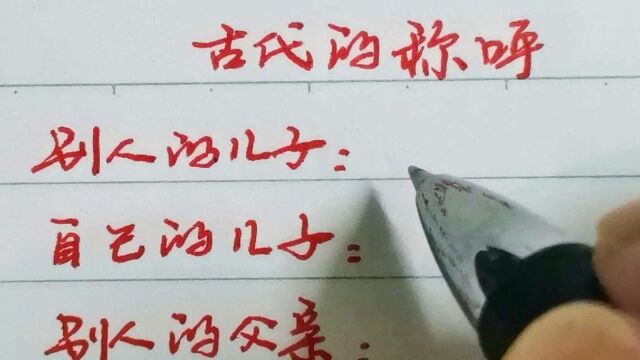 古代的称呼
别人的儿子：
自己的儿子：
别人的父亲：